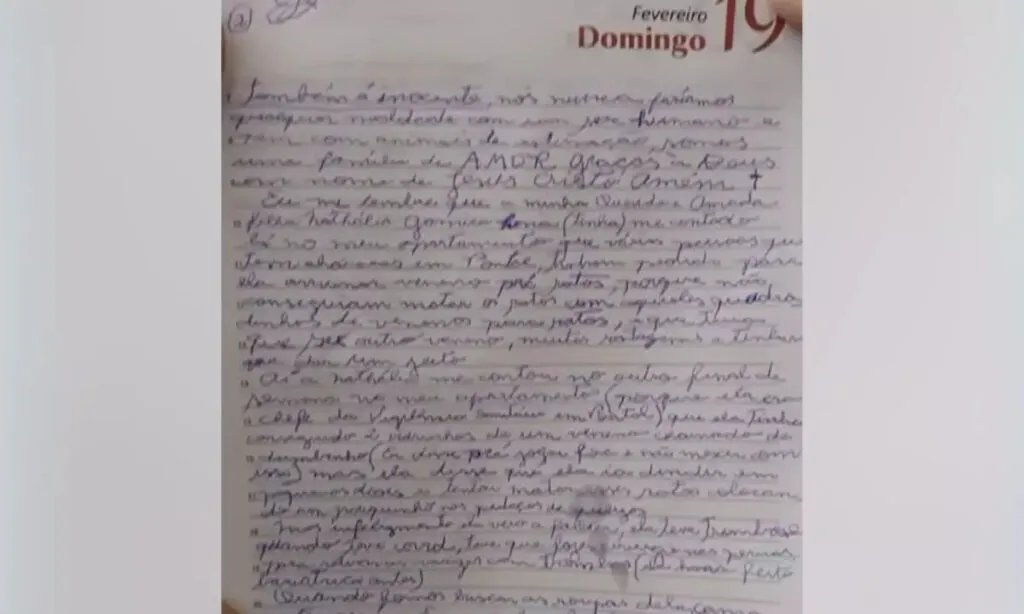 2
Fevereiro 19
Domingo
também é inocente, nós nunca faríamos
qualquer maldade com um ser humano e
nem com animais de estimação, somos
uma família de AMOR graças à Deus
com nome de Jesus Cristo Amém †
Eu me lembrei que a minha Querida e Amada
filha Nathália Garnica (tinha) me contado
lá no meu apartamento que várias pessoas que
tem chácaras em Pontal, tinham pedido para
ela arrumar veneno prá ratos, porque não
conseguiam matar os ratos com aqueles quadra
dinhos de venenos para ratos, e que tinha
que ser outro veneno, muitos e tinham
que dar um jeito
Aí a Nathália me contou no outro final de
semana no meu apartamento (porque ela era
chefe da Vigilância Sanitária em Pontal) que ela tinha
conseguido 2 vidrinhos de um veneno chamado de
chumbinho (Eu disse prá jogar fora e não mexer com
isso) mas ela disse que ela ia dividir em
doses e tentar matar esses ratos colocan
do um pouquinho nos pedaços de queijo
Mas infelizmente ela veio a falecer, ela teve Trombose
quando teve covid, teve que fazer cirurgia nas pernas
para as varizes com trombos (ela havia feito
bariátrica antes)
Quando fomos buscar as roupas dela